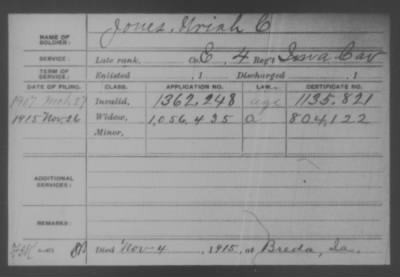 Jones, Uriah C
NAME OF SOLDIER:
SERVICE: Late rank, Co. E 4 Reg't Iowa Cav
TERM OF SERVICE: Enlisted , 1 Discharged , 1
DATE OF FILING. CLASS. APPLICATION NO. LAW. CERTIFICATE NO.
1907 Mch 27 Invalid, 1362,248 age 1135,821
1915 Nov 26 Widow, 1,056,435 O 804,122
Minor,
ADDITIONAL SERVICES:
REMARKS:
Died Nov-4, 1915, at Breda, Ia.